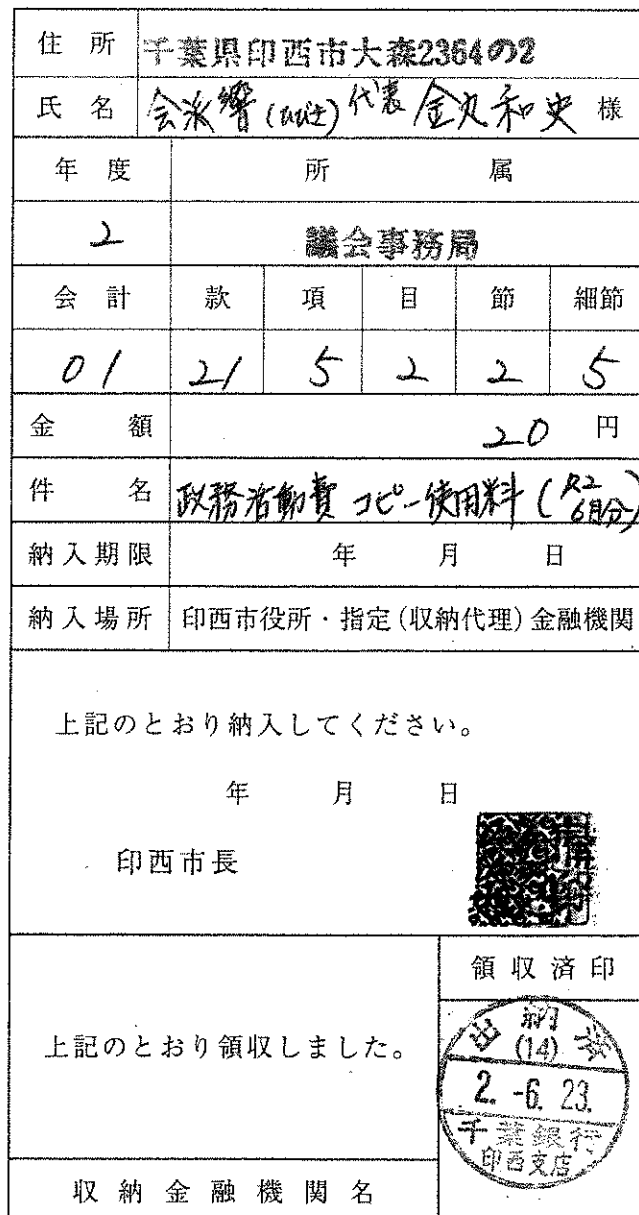 住所 千葉県印西市大森2364の2
氏名 会派響(ひびき)代表 金丸和史 様
年度 所属
2 議会事務局
会計 款 項 目 節 細節
01 21 5 2 2 5
金額 20 円
件名 政務活動費 コピー使用料(R2 6月分)
納入期限 年 月 日
納入場所 印西市役所・指定(収納代理)金融機関
上記のとおり納入してください。
年 月 日
印西市長
領収済印
上記のとおり領収しました。
出納済
(14)
2. -6. 23.
千葉銀行
印西支店
収納金融機関名